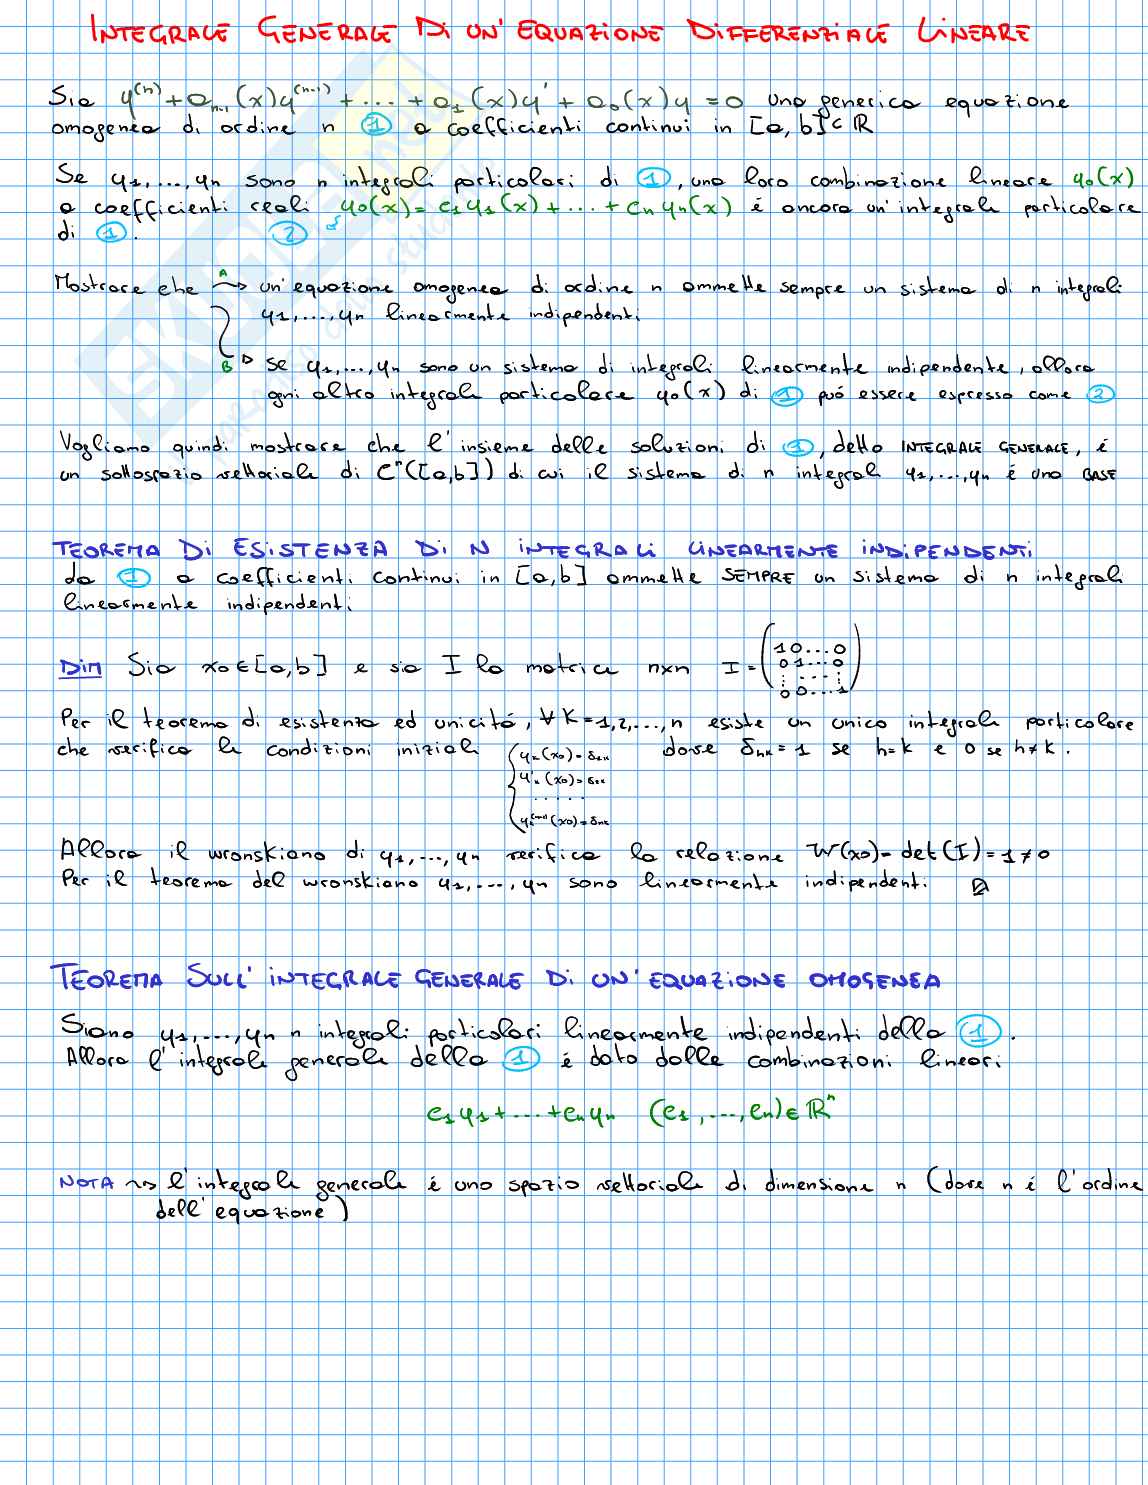 INTEGRALE GENERALE DI UN'EQUAZIONE DIFFERENZIALE LINEARE
Sia y⁽ⁿ⁾+aₙ₋₁(x)y⁽ⁿ⁻¹⁾+...+a₁(x)y'+a₀(x)y=0 una generica equazione
omogenea di ordine n ① a coefficienti continui in [a,b]⊂ℝ
Se y₁,...,yₙ sono n integrali particolari di ①, una loro combinazione lineare y₀(x)
a coefficienti reali y₀(x)=c₁y₁(x)+...+cₙyₙ(x) é ancora un'integrale particolare
di ①. ②
Mostrare che A un'equazione omogenea di ordine n ammette sempre un sistema di n integrali
y₁,...,yₙ linearmente indipendenti
B se y₁,...,yₙ sono un sistema di integrali linearmente indipendente, allora
ogni altro integrale particolare y₀(x) di ① puó essere espresso come ②
Vogliamo quindi mostrare che l'insieme delle soluzioni di ①, detto INTEGRALE GENERALE, é
un sottospazio vettoriale di Cⁿ([a,b]) di cui il sistema di n integrali y₁,...,yₙ é una BASE
TEOREMA DI ESISTENZA DI N INTEGRALI LINEARMENTE INDIPENDENTI
da ① a coefficienti continui in [a,b] ammette SEMPRE un sistema di n integrali
linearmente indipendenti
DIM Sia x₀∈[a,b] e sia I la matrice n×n I=(1 0...0
0 1...0
: ..... :
0 0...1)
Per il teorema di esistenza ed unicitá, ∀K=1,2,...,n esiste un unico integrale particolare
che verifica le condizioni iniziali {yₖ(x₀)=δ₁ₖ dove δₕₖ=1 se h=k e 0 se h≠k.
y'ₖ(x₀)=δ₂ₖ
.....
yₖ⁽ⁿ⁻¹⁾(x₀)=δₙₖ
Allora il wronskiano di y₁,...,yₙ verifica la relazione W(x₀)=det(I)=1≠0
Per il teorema del wronskiano y₁,...,yₙ sono linearmente indipendenti.
TEOREMA SULL'INTEGRALE GENERALE DI UN'EQUAZIONE OMOGENEA
Siano y₁,...,yₙ n integrali particolari linearmente indipendenti della ①.
Allora l'integrale generale della ① é dato dalle combinazioni lineari
c₁y₁+...+cₙyₙ (c₁,...,cₙ)∈ℝⁿ
NOTA ~> l'integrale generale é uno spazio vettoriale di dimensione n (dove n é l'ordine
dell'equazione)